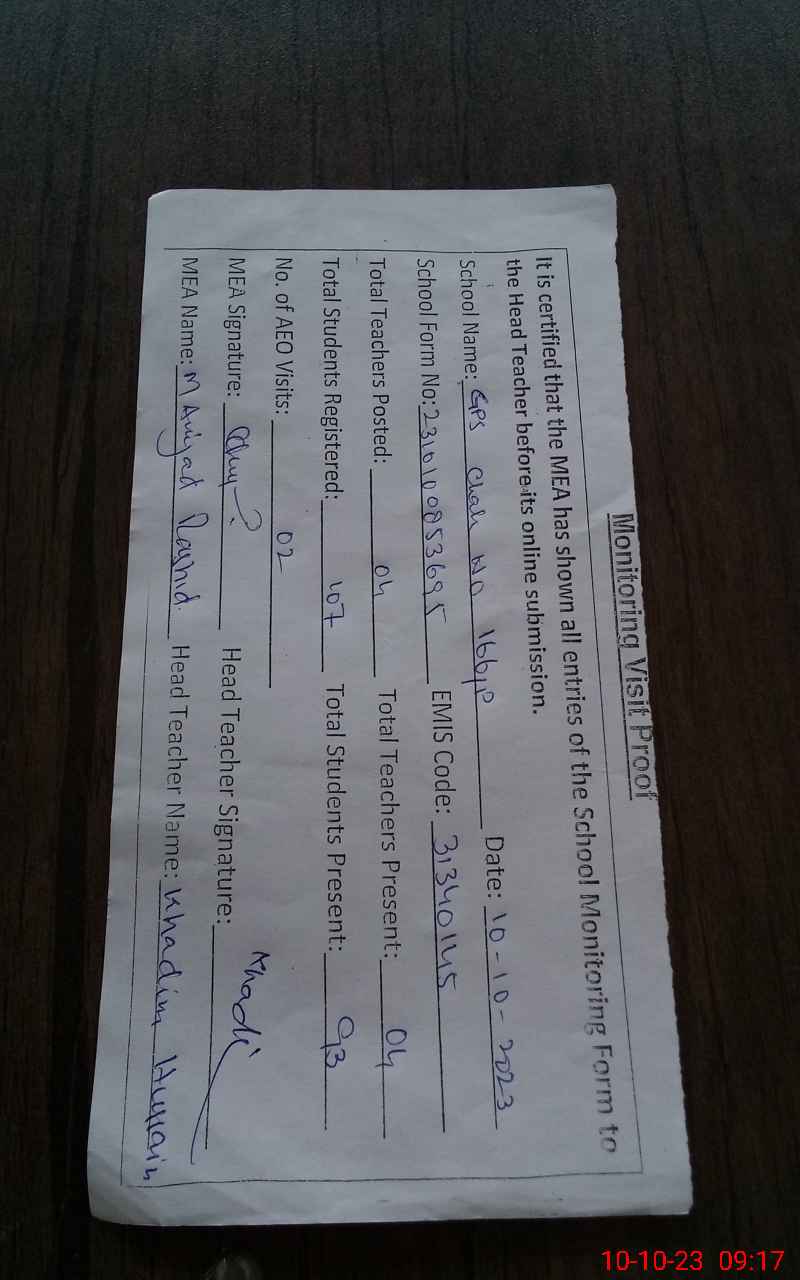 Monitoring Visit Proof
It is certified that the MEA has shown all entries of the School Monitoring Form to
the Head Teacher before its online submission.
School Name: GPS Chak No 166/P Date: 10-10-2023
School Form No: 2310100853695 EMIS Code: 31340145
Total Teachers Posted: 04 Total Teachers Present: 04
Total Students Registered: 107 Total Students Present: 93
No. of AEO Visits: 02
MEA Signature: Head Teacher Signature: Khadi
MEA Name: M Amjad Rashid. Head Teacher Name: Khadim Hussain
10-10-23 09:17